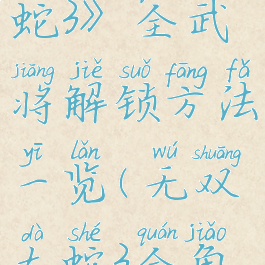 蛇3》全武
jiāng jiě suǒ fāng fǎ
将解锁方法
yī lǎn wú shuāng
一览(无双
dà shé quán jiǎo
大蛇3全角